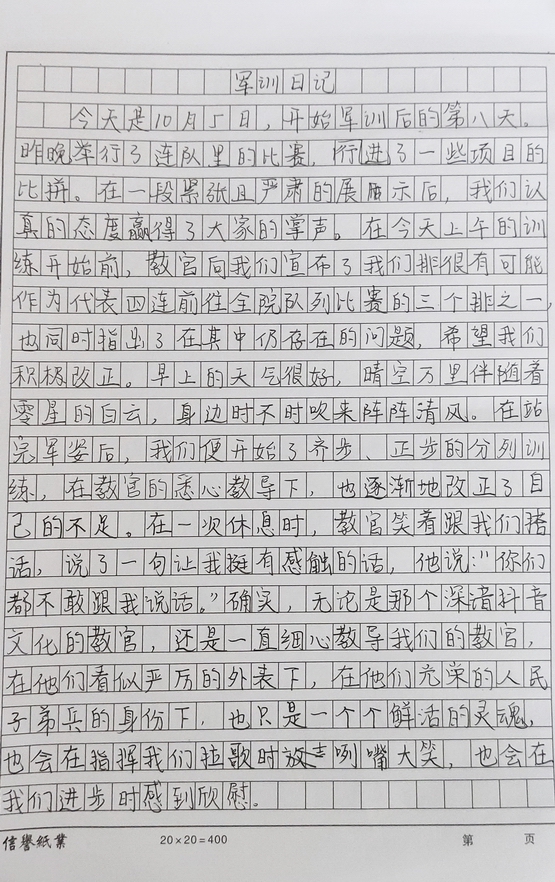 军训日记
今天是10月5日，开始军训后的第八天。
昨晚举行了连队里的比赛，进行了一些项目的
比拼。在一段紧张且严肃的展示后，我们认
真的态度赢得了大家的掌声。在今天上午的训
练开始前，教官向我们宣布了我们排很有可能
作为代表四连前往全院队列比赛的三个排之一，
也同时指出了在其中仍存在的问题，希望我们
积极改正。早上的天气很好，晴空万里伴随着
零星的白云，身边时不时吹来阵阵清风。在站
完军姿后，我们便开始了齐步、正步的分列训
练，在教官的悉心教导下，也逐渐地改正了自
己的不足。在一次休息时，教官笑着跟我们搭
话，说了一句让我挺有感触的话，他说："你们
都不敢跟我说话。"确实，无论是那个深谙抖音
文化的教官，还是一直细心教导我们的教官，
在他们看似严厉的外表下，在他们光荣的人民
子弟兵的身份下，也只是一个个鲜活的灵魂，
也会在指挥我们拉歌时放声咧嘴大笑，也会在
我们进步时感到欣慰。
信誉纸业 20×20=400 第 页